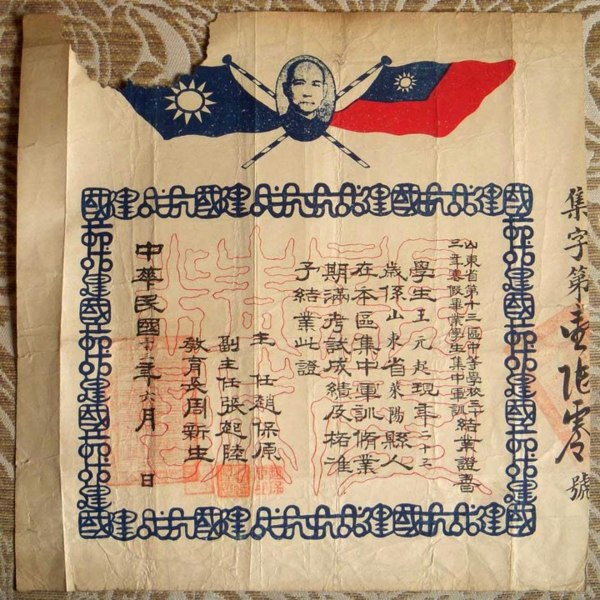 集字第壹陸零號
山東省第十三區中等學校三十
三年暑假畢業學生集中軍訓
結業證書
學生王元起現年二十三
歲係山東省萊陽縣人
在本區集中軍訓脩業
期滿考試成績及格准
予結業此證
主任趙保原
副主任張起陸
教育長周新生
中華民國三十三年六月 日